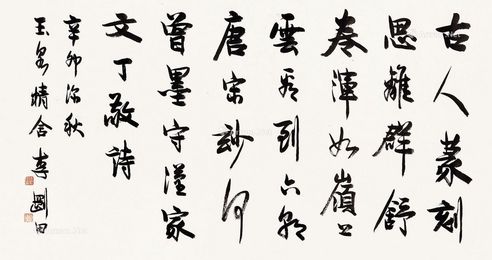 古人篆刻
思離群舒
卷渾如嶺上
雲看到六朝
唐宋妙何
曾墨守漢家
文丁敬詩
辛卯深秋
玉泉精舍李剛田